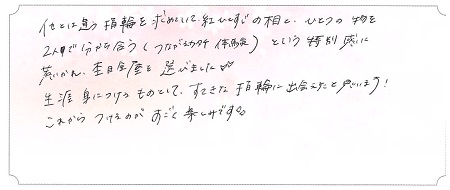 他とは違う指輪を求めていて、紅ひとすじの相と、ひとつの物を
2人で分かち合う(つながるカタチ 体験)という特別感に
惹かれ、杢目金屋を選びました
生涯身につけるものとして、すてきな指輪に出会えたと思います!
これからつけるのがすごく楽しみです。